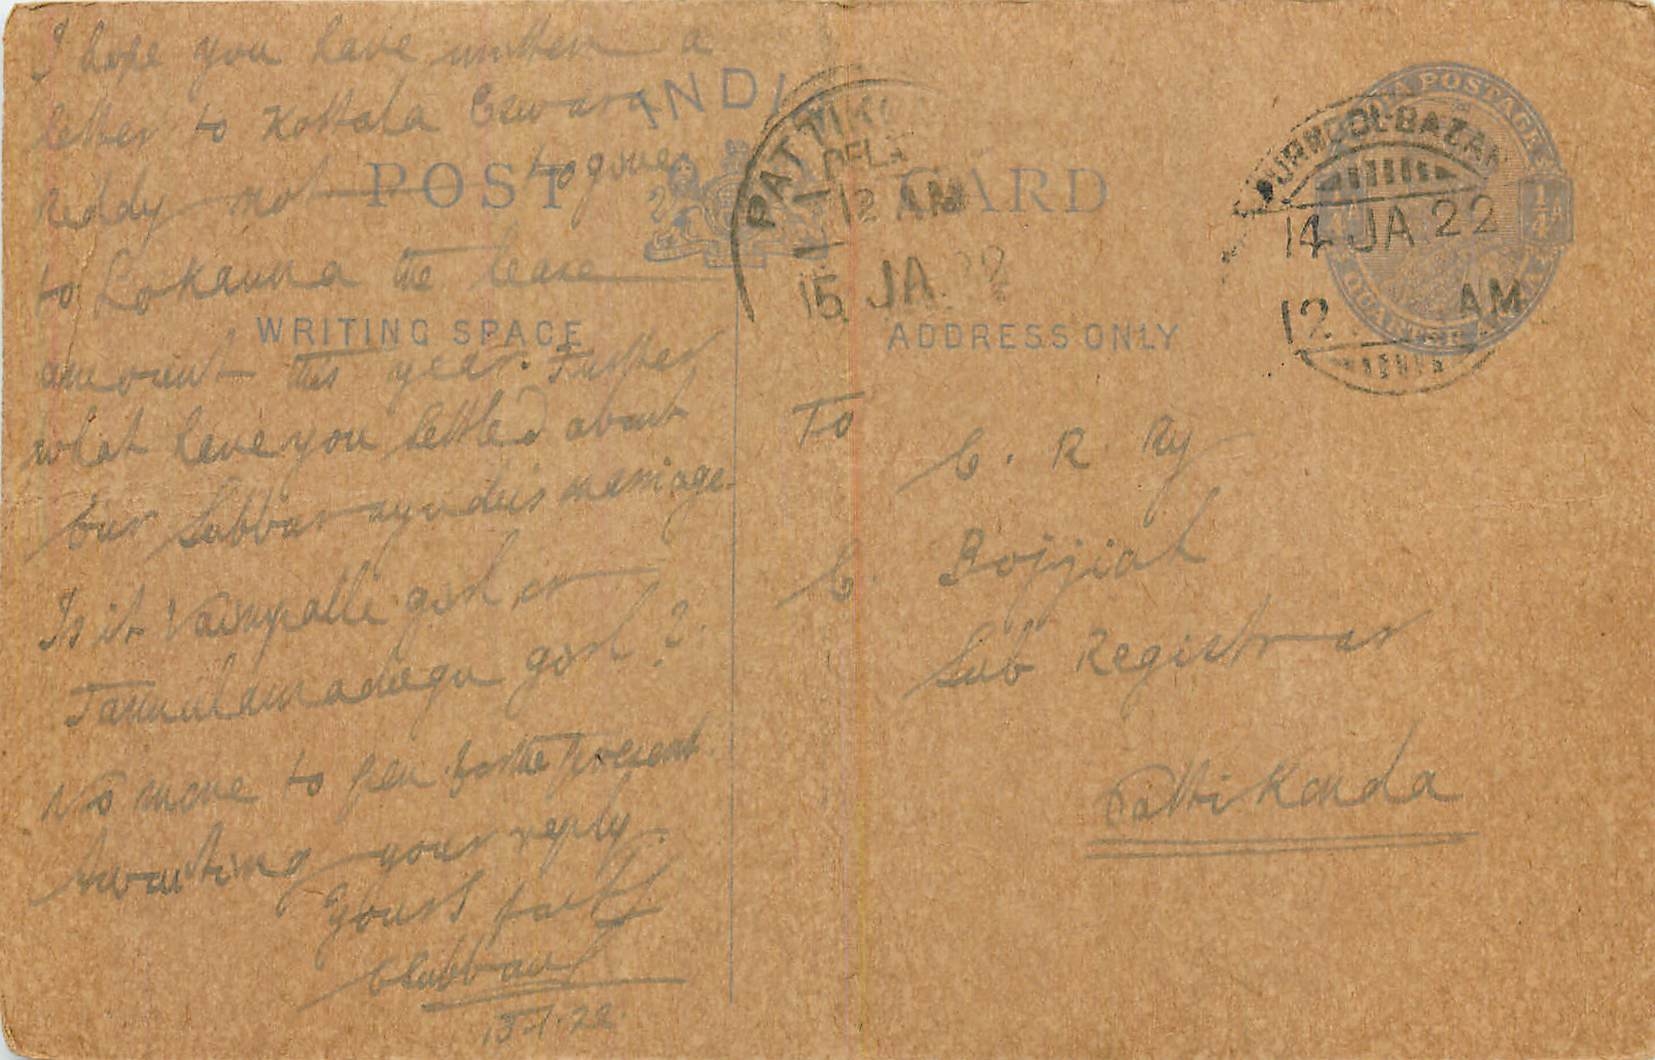 I hope you have written a
letter to Kottala Eswara
Reddy not to give
to Lokanna the lease
amount this year. Further
what have you settled about
our Subbarayudu's marriage.
Is it Vaimpalle girl or
girl?
No more to pen for the present
Awaiting your reply.
Yours faitly
CSubbaul
13-1-22
INDIA
POST CARD
WRITING SPACE
ADDRESS ONLY
PATTIK
12 AM
15 JA 22
INDIA POSTAGE
1/4 A
QUARTER ANNA
KURNOOL-BAZAR
14 JA 22
12 AM
To
C. R. Ry
C. Bojjiah
Sub Registrar
Pattikonda